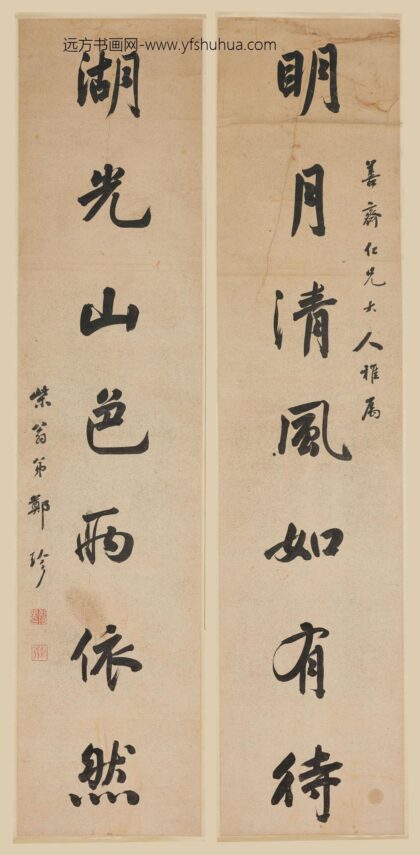 远方书画网-www.yfshuhua.com
明月清風如有待
善齋仁兄大人雅属
湖光山色兩依然
柴翁弟鄭珍